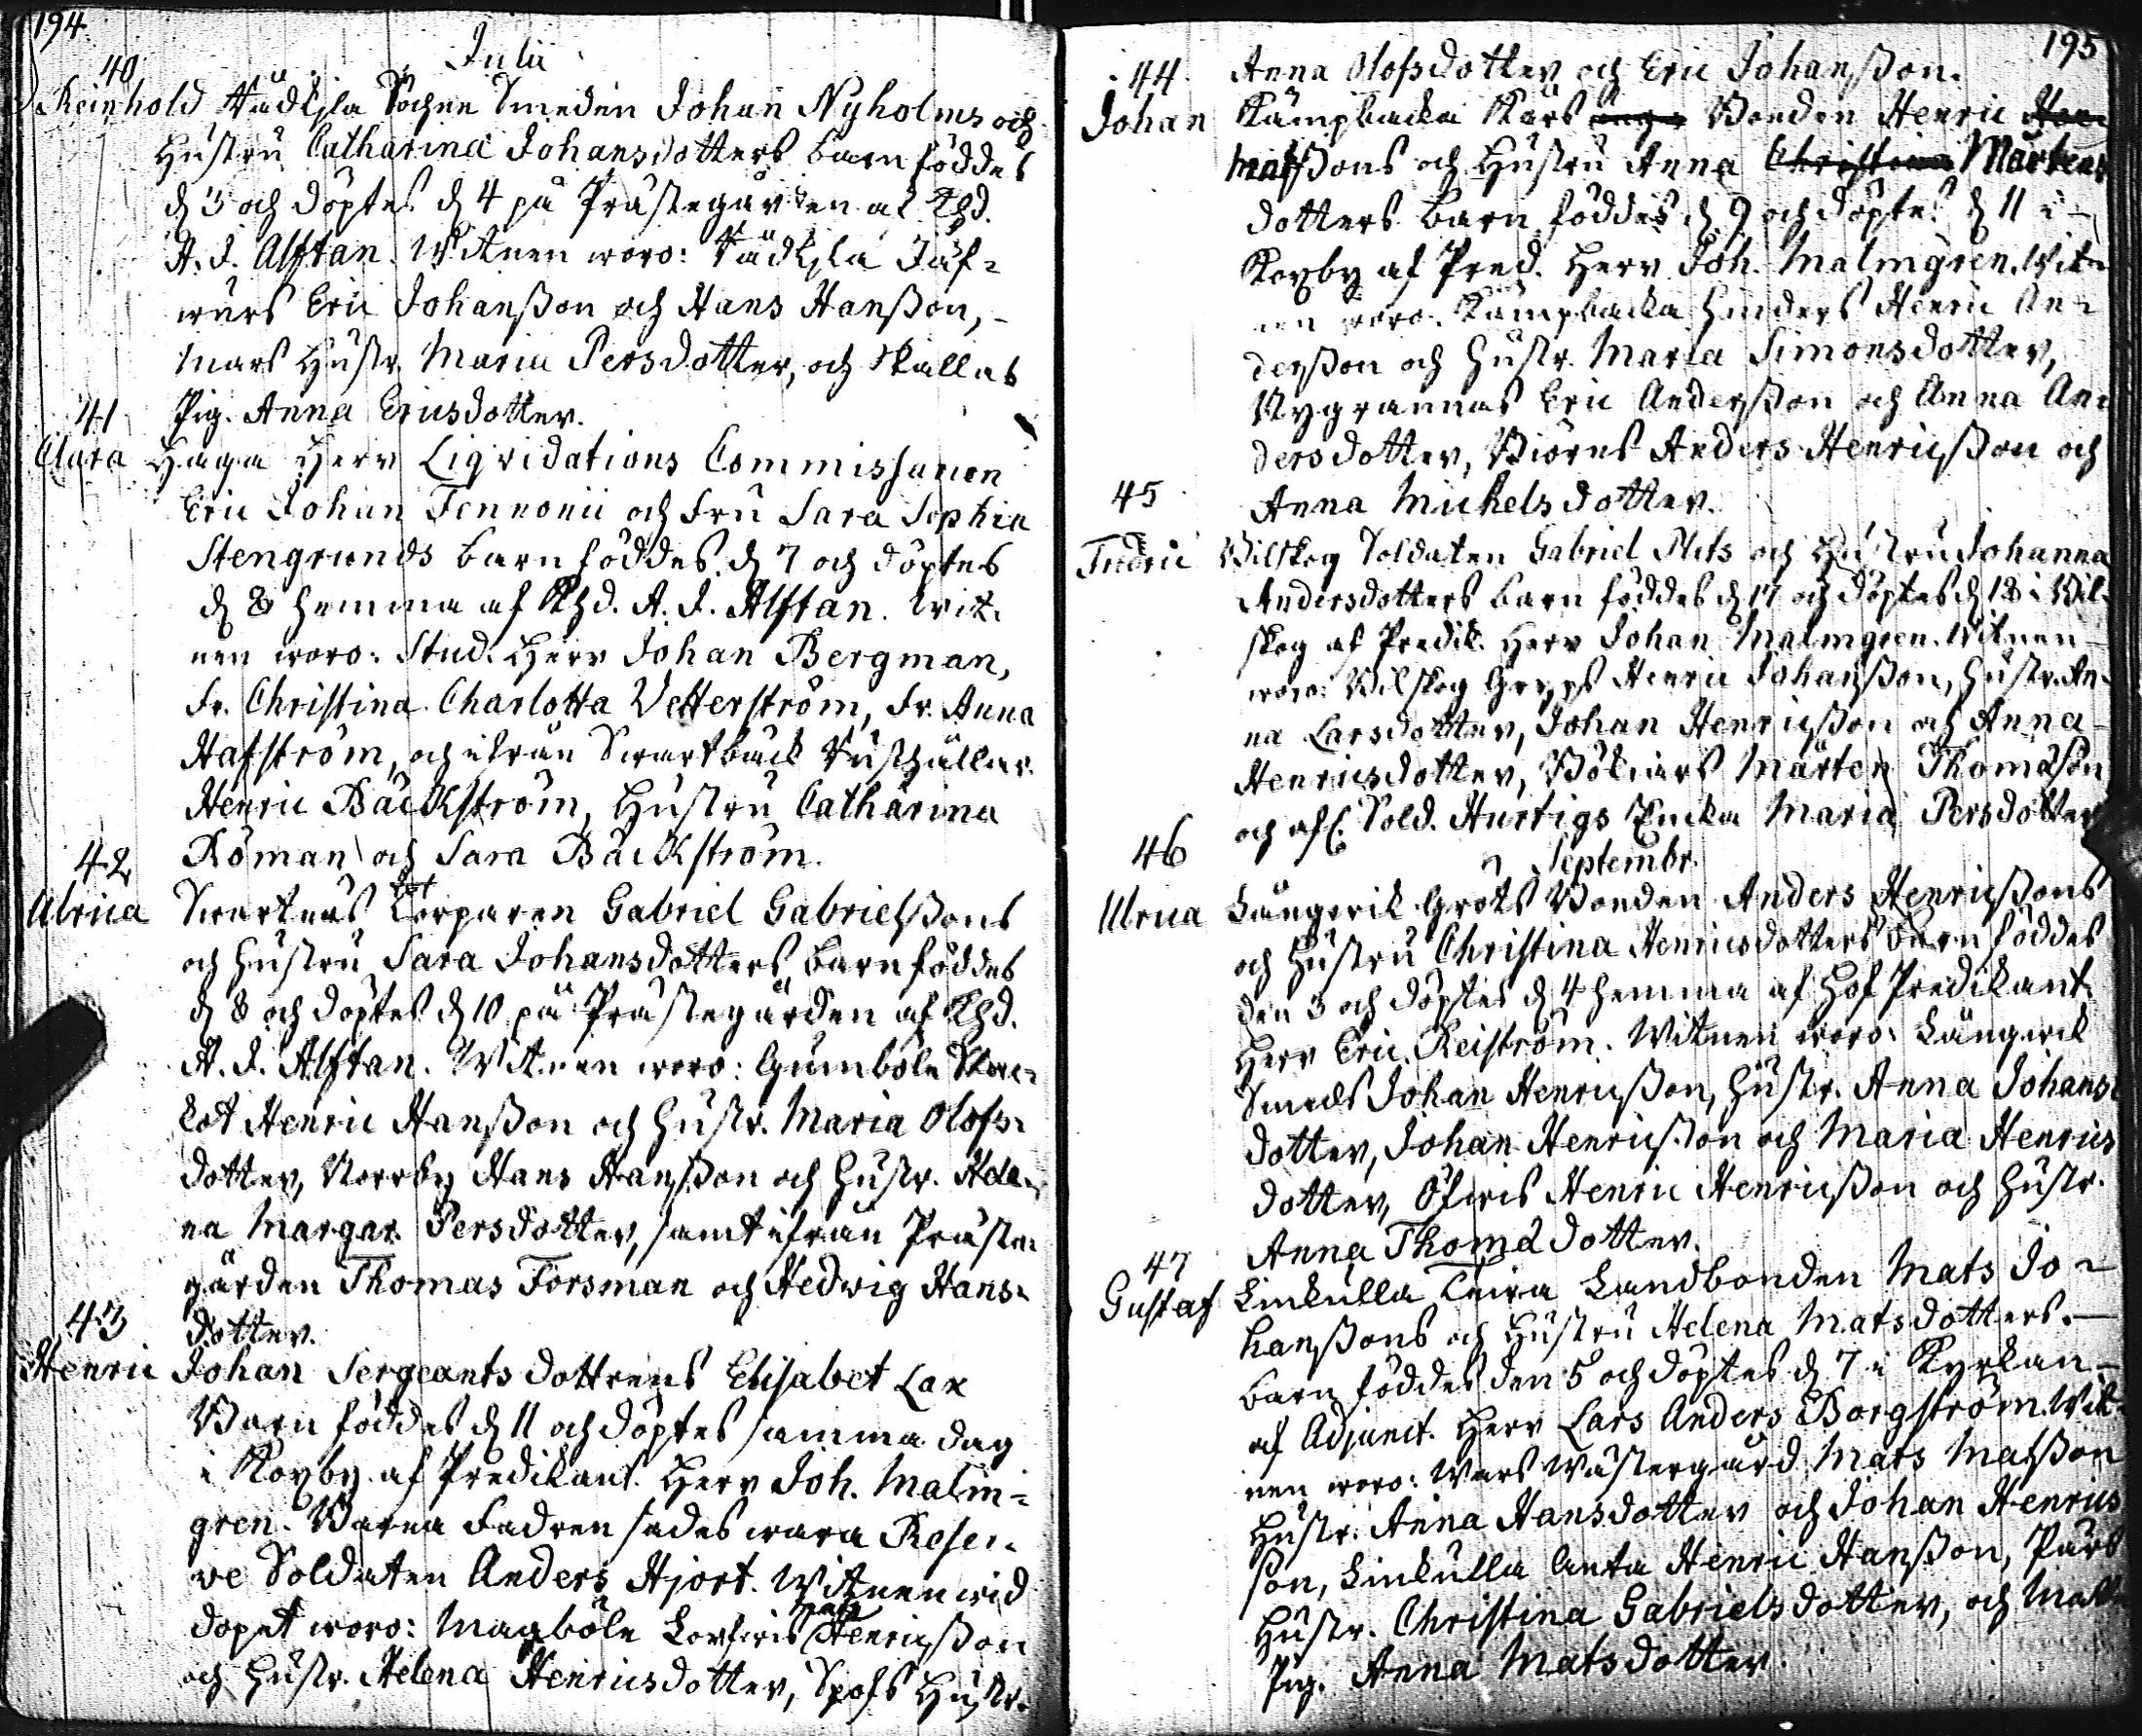 194
Julii
40
Reinhold Kådhjla Sochne Smeden Johan Nyholms och
Hustru Catharina Johansdotters barn föddes
d 3 och döptes d 4 på Prästegården af Khd.
A. J. Alftan. Witnen woro: Kådhjla Jäf-
wars Eric Johanßon och Hans Hanßon,
Mars Hustr. Maria Persdotter, och Skallas
Pig. Anna Ericsdotter.
41
Clara Haga Herr Liqvidations Commissarien
Eric Johan Fennonii och Fru Sara Sophia
Stengrunds barn föddes d 7 och döptes
d 8 hemma af Khd. A. J. Alftan. Wit-
nen woro: Stud. Herr Johan Bergman,
Fr. Christina Charlotta Vetterström, Fr. Anna
Hafström, och ifrån Swartbäck
Henric Bäckström, Hustru Catharina
Röman och Sara Bäckström.
42
Ulrica Swartnäs Torparen Gabriel Gabrielßons
och Hustru Sara Johansdotters barn föddes
d 8 och döptes d 10 på Prästegården af Khd.
A. J. Alftan. Witnen woro: Gumböle
Henric Hanßon och Hustr. Maria Olofs-
dotter, Norrby Hans Hanßon och Hustr. Hele-
na Margar. Persdotter, samt ifrån Präste-
gården Thomas Forsman och Hedwig Hans-
dotter.
43
Henric Johan Sergeants dottrens Elisabet Lax
Barn föddes d 11 och döptes samma dag
i Koxby af Predikant. Herr Joh. Malm-
gren. Barna Fadren sades wara Reser-
ve Soldaten Anders Hjort. Witnen wid
dopet woro: Magböle Henricßon
och Hustr. Helena Henricsdotter, Spofs Hustr.
195
44
Anna Olofsdotter och Eric Johanßon.
Johan Kämpbacka Kårs Bonden Henric
Matßons och Hustru Anna Christina Mårtens
dotters barn föddes d 9 och döptes d 11 i
Koxby af Pred. Herr Joh. Malmgren. Wit-
nen woro: Kämpbacka Hinders Henric An-
derßon och Hustr. Maria Simonsdotter,
Nygrannas Eric Anderßon och Anna An-
dersdotter, Biörns Anders Henricßon och
45
Anna Michelsdotter.
Fredric Bilskog Soldaten Gabriel Plits och Hustru Johanna
Andersdotters barn föddes d 17 och döptes d 18 i Bil-
skog af Predik. Herr Johan Malmgren. Witnen
woro: Bilskog Grepps Henric Johanßon, Hustr. An-
na Larsdotter, Johan Henricßon och Anna
Henricsdotter, Bökars Mårten Thomasson
och afl. Sold. Hurtigs Enka Maria Persdotter
46
Septembr.
Ulrica Långwik Grots Bonden Anders Henricßons
och Hustru Christina Henricsdotters barn föddes
den 3 och döptes d 4 hemma af Hof Predikant.
Herr Eric Reiström. Witnen woro: Långwik
Smeds Johan Henricßon, Hustr. Anna Johans-
dotter, Johan Henricßon och Maria Henrics
dotter, Öfwis Henric Henricßon och Hustr.
Anna Thomadotter.
47
Gustaf Linkulla Teira Landbonden Mats Jo-
hanßons och Hustru Helena Matsdotters
barn föddes den 5 och döptes d 7 i Kyrkan
af Adjunct. Herr Lars Anders Borgström. Wit-
nen woro: Wars Wästergård Mats Matßon
Hustr. Anna Hansdotter och Johan Henrics
son, Linkulla Anta Henric Hanßon, Pärs
Hustr. Christina Gabrielsdotter, och
Pig. Anna Matsdotter.